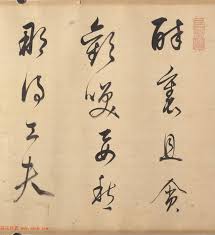 醉裏且貪
歡笑要愁
那得工夫